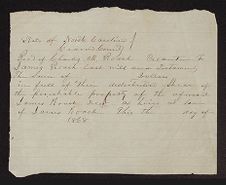 State of North Carolina }
Craven County }
Recd of Charly M. Roach Executor to
James Roach last will and Testament
The Sum of Dollars
in full of their distributive Share of
the perishable property of the
James Roach Decd as heirs at law
of James Roach This the day of
1868